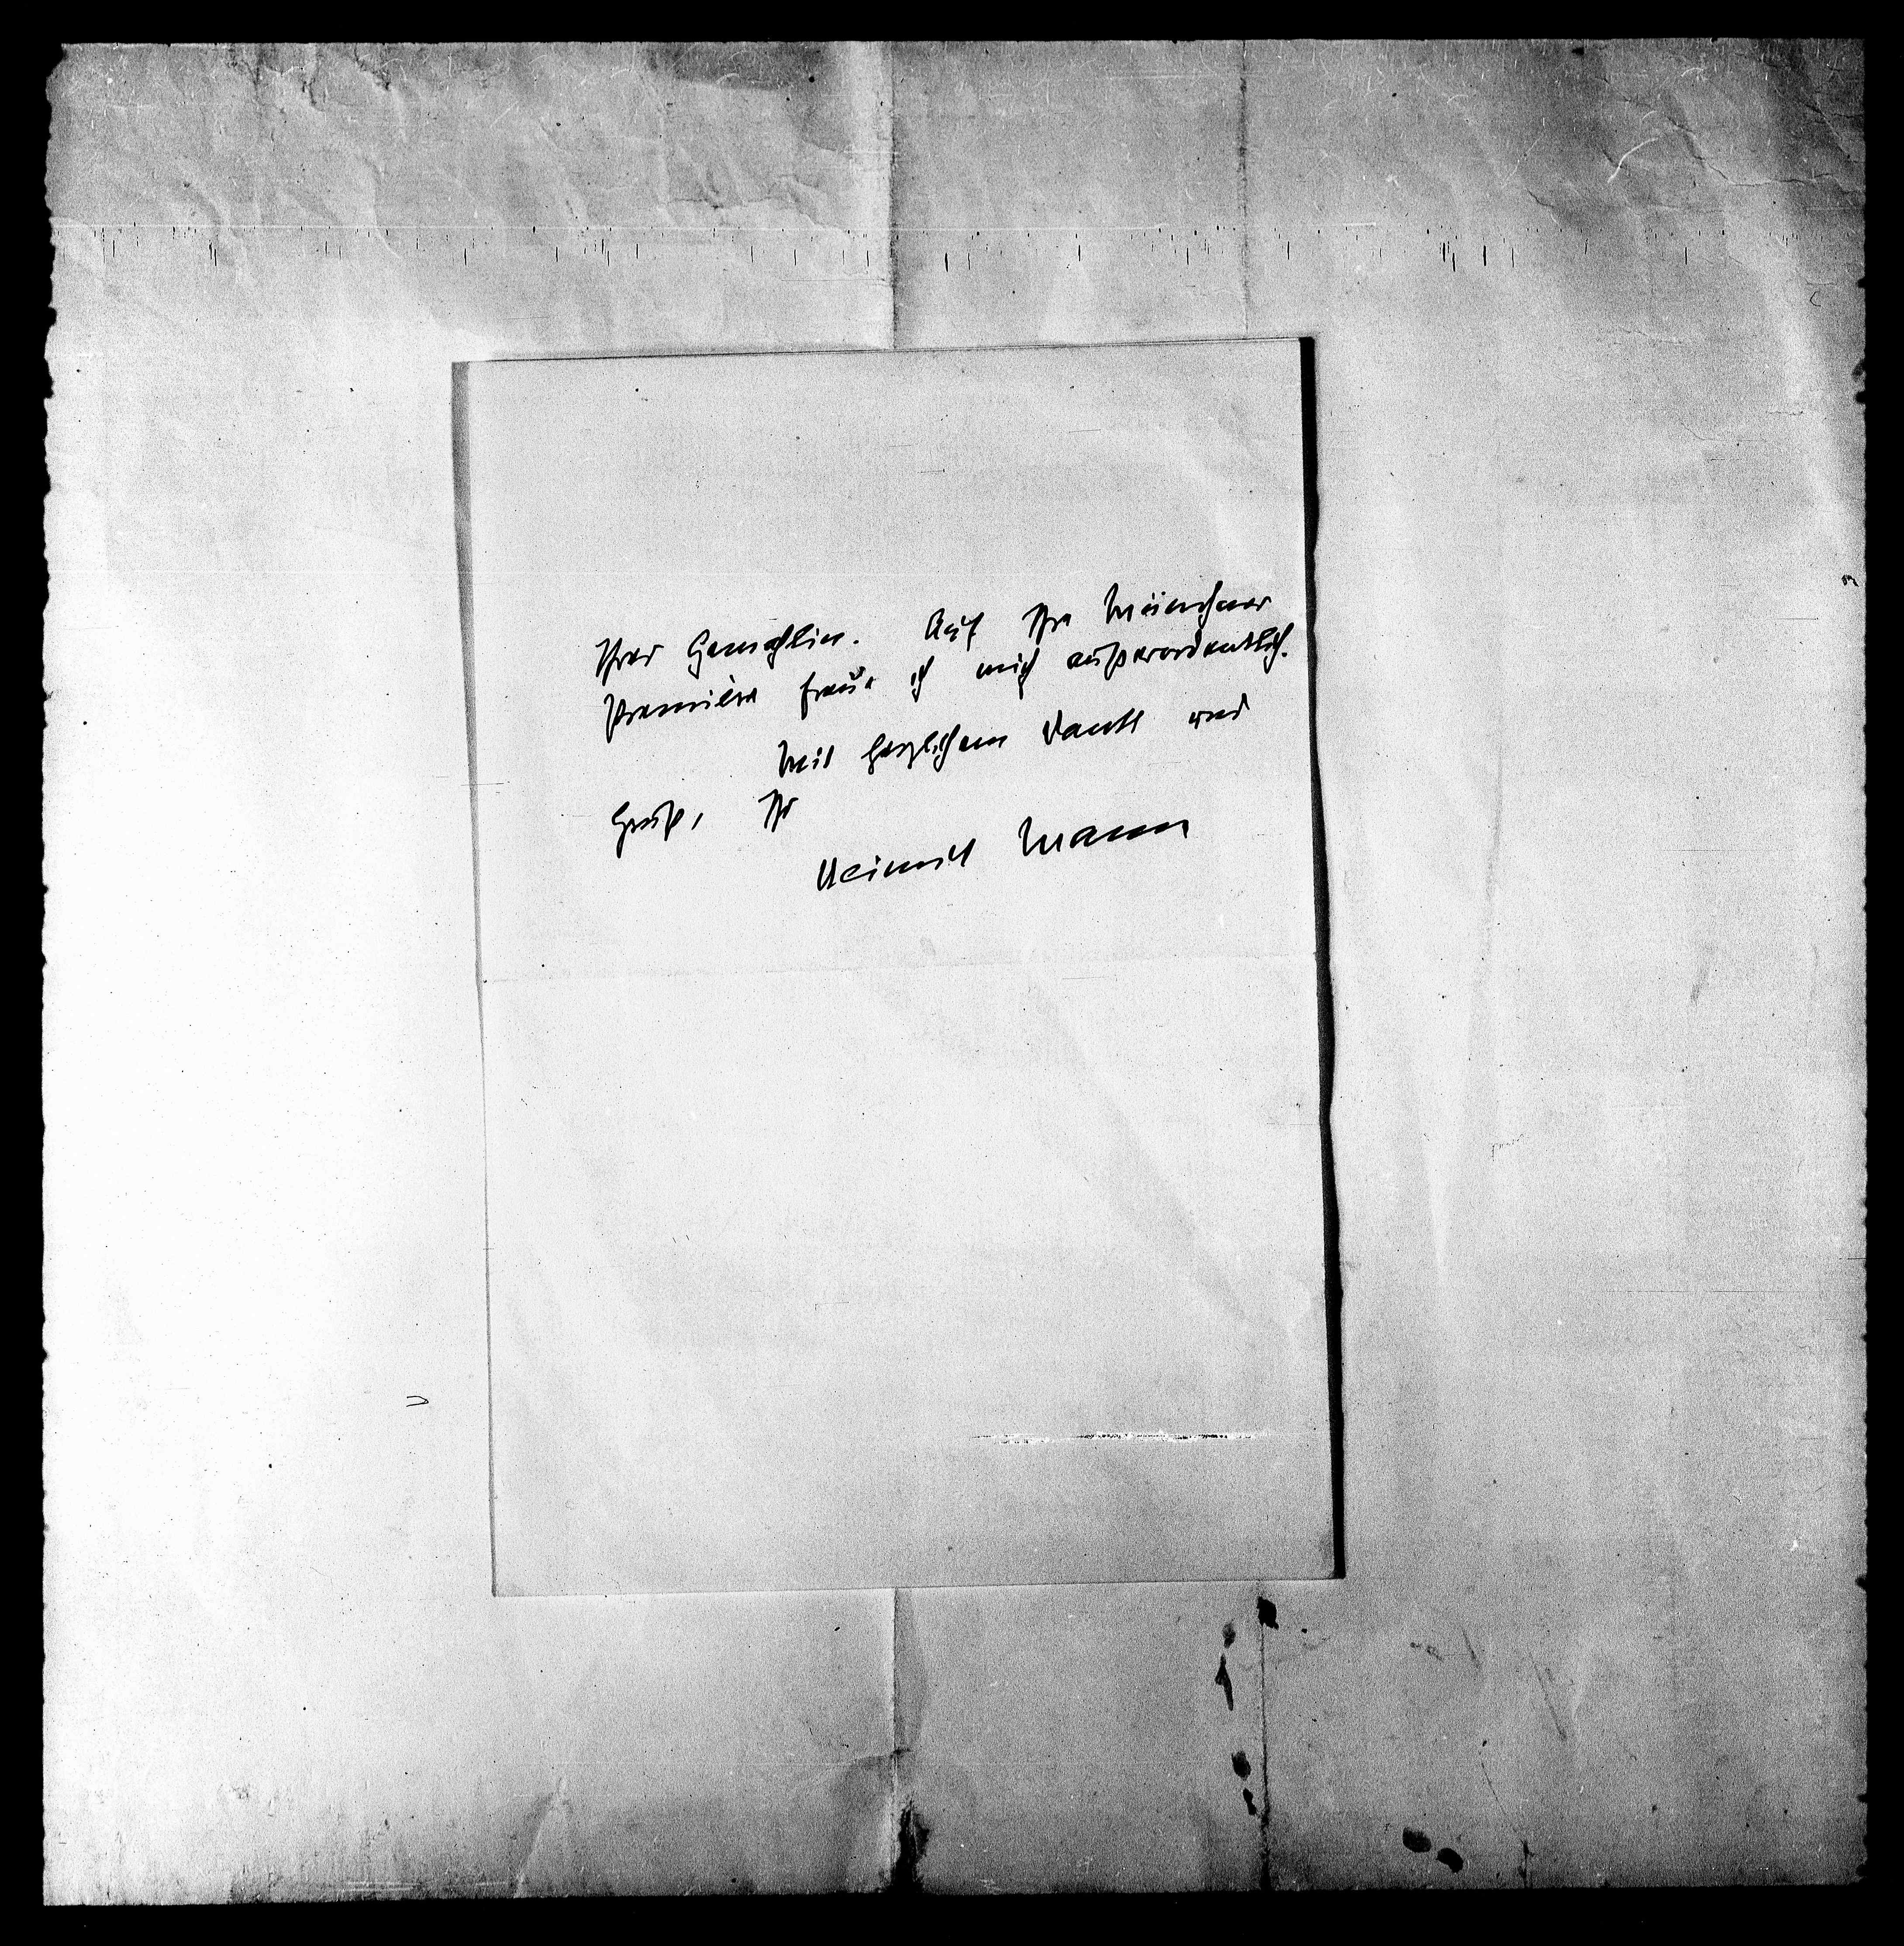 Ihrer Gemahlin. Auf Ihre Münchner
Première freue ich mich außerordentlich.
Mit herzlichem Dank und
Gruß, Ihr
Heinrich Mann